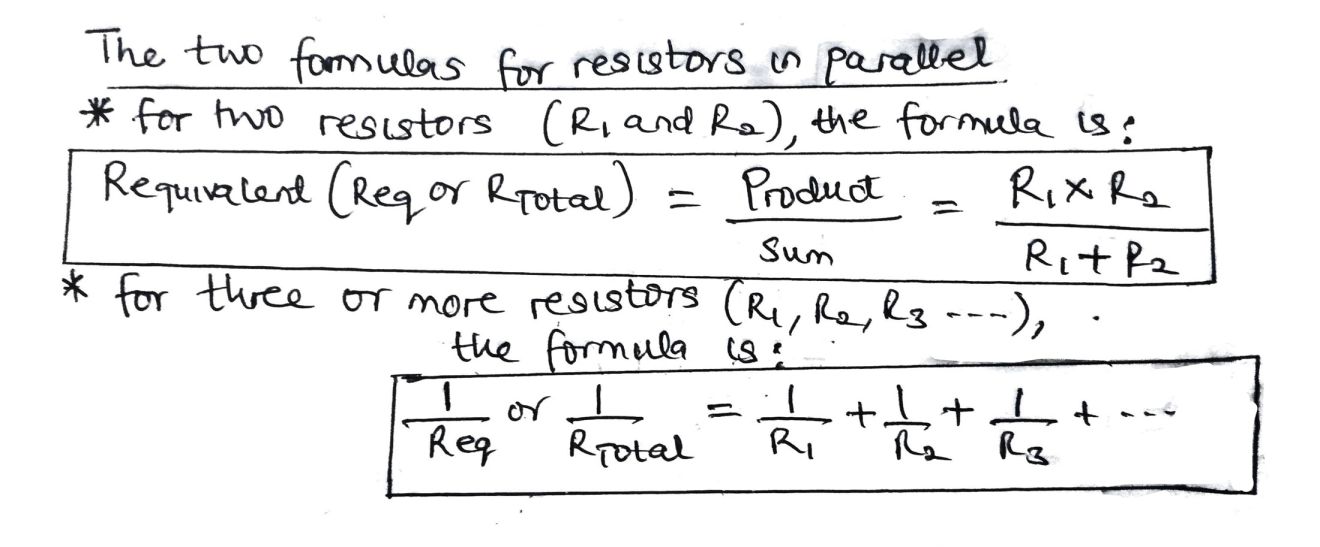 The two formulas for resistors in parallel
* for two resistors (R₁ and R₂), the formula is:
Requivalent (Req or RTotal) = Product / Sum = R₁ × R₂ / R₁ + R₂
* for three or more resistors (R₁, R₂, R₃ ----),
the formula is:
1/Req or 1/RTotal = 1/R₁ + 1/R₂ + 1/R₃ + ---